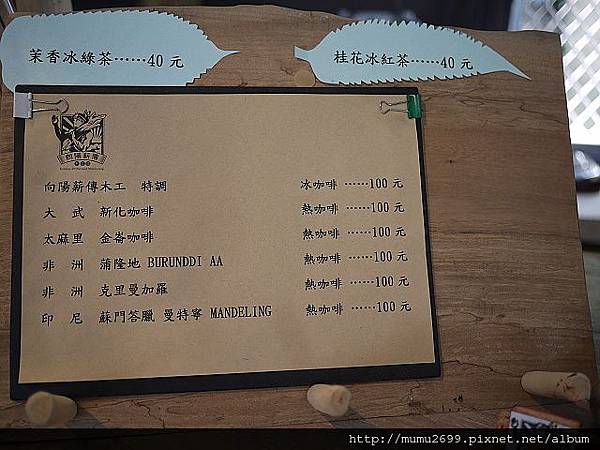 茉香冰綠茶……40 元
桂花冰紅茶……40 元
向陽薪傳
向陽薪傳木工 特調 冰咖啡 ……100 元
大 武 新化咖啡 熱咖啡 ……100 元
太麻里 金崙咖啡 熱咖啡 ……100 元
非 洲 蒲隆地 BURUNDDI AA 熱咖啡 ……100 元
非 洲 克里曼加羅 熱咖啡 ……100 元
印 尼 蘇門答臘 曼特寧 MANDELING 熱咖啡 ……100 元
http://mumu2699.pixnet.net/album